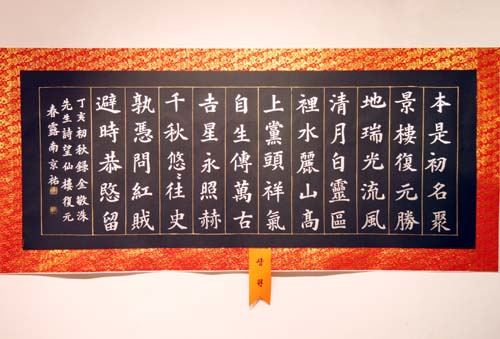 本是初名聚
景樓復元勝
地瑞光流風
清月白靈區
裡水麗山高
上黨頭祥氣
自生傳萬古
吉星永照赫
千秋悠々往史
孰憑問紅賊
避時恭愍留
丁亥初秋錄金敬洙
先生詩望仙樓復元
春露南京祐